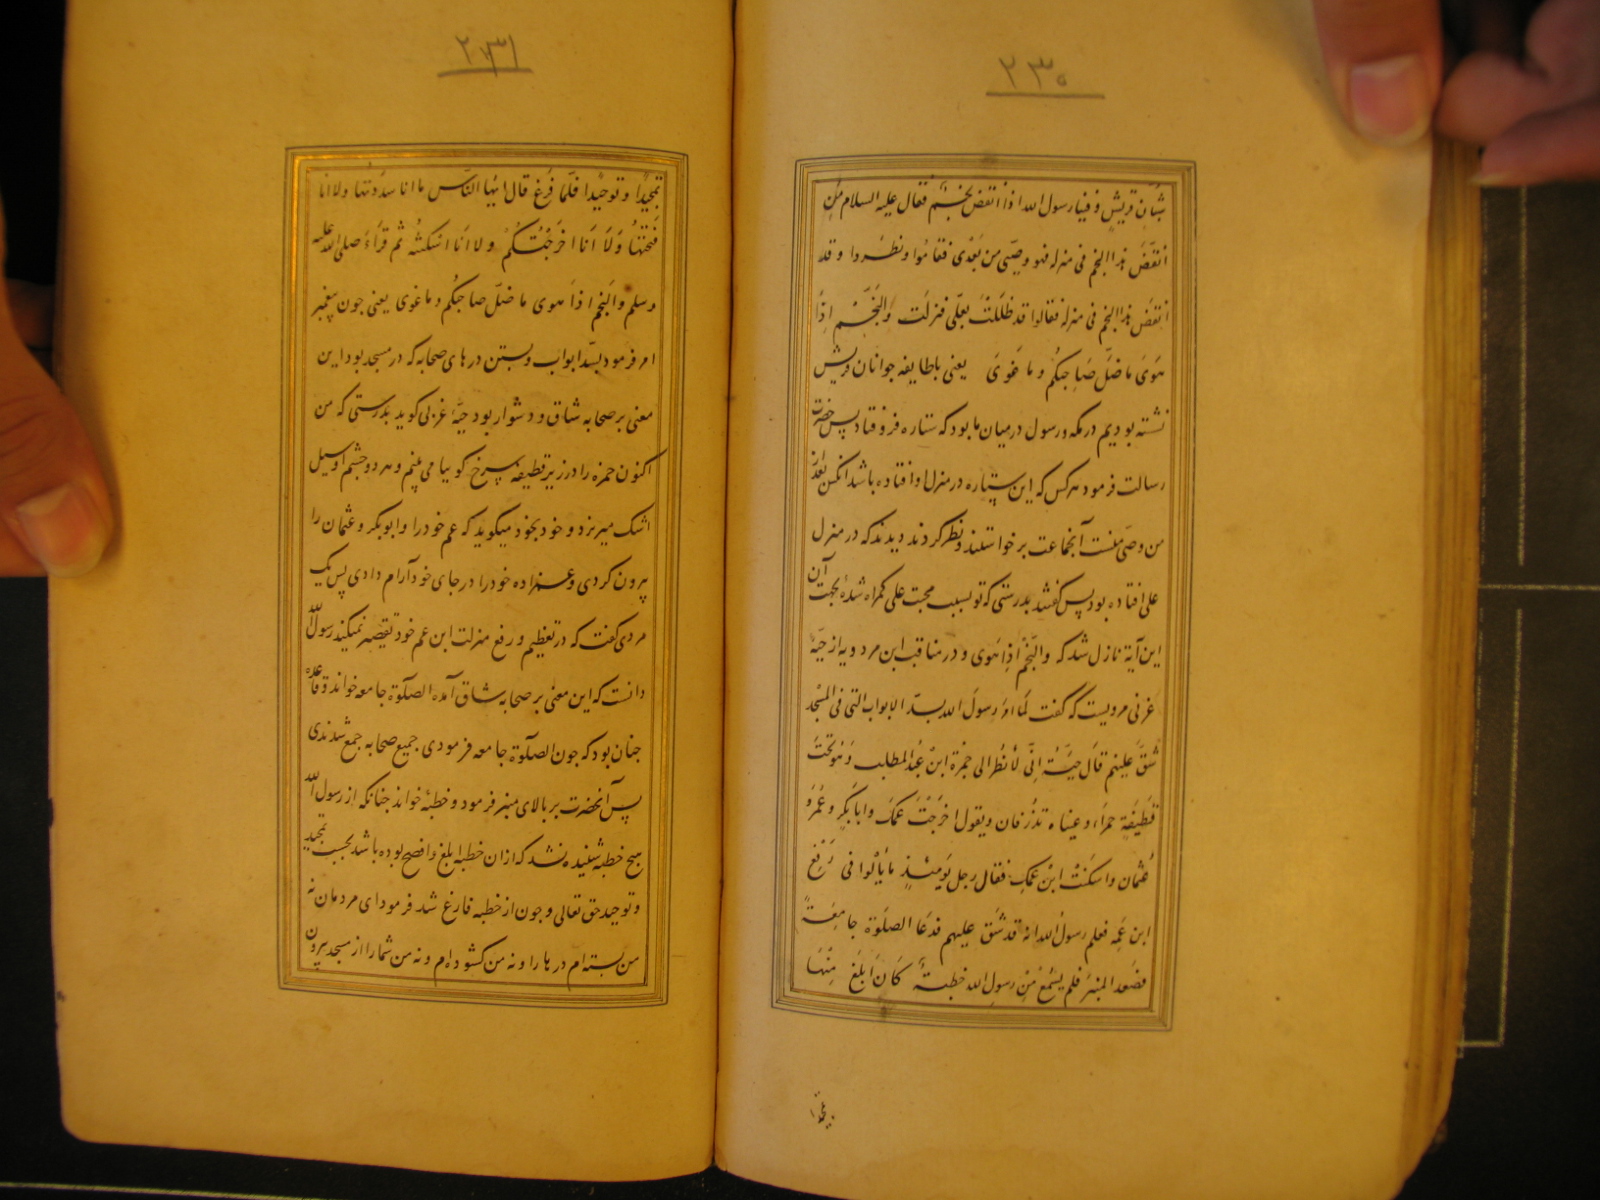 ۲۳۰
شبّان قریش و فینا رسول الله اذا انقض نجم فقال علیه السلام من
انقضّ هذا النجم فی منزله فهو وصیّی من بعدی فقاموا و نظروا و قد
انقضّ هذا النجم فی منزله فقالوا قد ظللت بعلی فنزلت والنجم اذا
هوی ما ضلّ صاحبکم و ما غوی یعنی باطایفه جوانان قریش
نشسته بودیم در مکه و رسول در میان ما بود که ستاره فرو فتاد پس حضرت
رسالت فرمود هر کس که این ستاره در منزل او افتاده باشد آنکس بعد از
من وصیّ منست آنجماعت برخواستند و نظر کردند دیدند که در منزل
علی افتاده بود پس گفتند بدرستی که تو بسبب محبت علی گمراه شدهٔ بجهت آن
این آیة نازل شد که والنجم اذا هوی و در مناقب ابن مردویه از حبّهٔ
عرنی مرویست که گفت لما امر رسول الله بسدّ الابواب التی فی المسجد
شقّ علیهم قال حبّة انّی لانظر الی حمزة ابن عبدالمطلب و هو تحت
قطیفة حمراء و عیناه تذرفان و یقول اخرجت عمک و ابابکر و عمر و
عثمان و اسکنت ابن عمک فقال رجل یومئذ ما یألوا فی رفع
ابن عمه فعلم رسول الله انه قد شق علیهم فدعا الصلوة جامعة
فصعد المنبر فلم یسمع من رسول الله خطبة کان ابلغ منها
تمجیدا
۲۳۱
تمجیدا و توحیدا فلما فرغ قال ایها الناس ما انا سددتها ولا انا
فتحتها ولا انا اخرجتکم ولا انا اسکنته ثم قراء صلی الله علیه
وسلم والنجم اذا هوی ما ضلّ صاحبکم و ما غوی یعنی جون پیغمبر
امر فرمود بسدّ ابواب و بستن درهای صحابه که در مسجد بود این
معنی بر صحابه شاق و دشوار بود حبّهٔ عرنی کوید بدرستی که من
اکنون حمزه را در زیر قطیفه سرخ کویا می بینم و هر دو جشم او سیل
اشک میریزد و خود بخود میکوید که عم خود را و ابوبکر و عثمان را
بیرون کردی و عمزاده خود را در جای خود آرام دادی پس یک
مردی کفت که در تعظیم و رفع منزلت ابن عم خود تقصیر نمیکند رسول الله
دانست که این معنی بر صحابه شاق آمده الصلوة جامعه خواند و قاعده
جنان بود که جون الصلوة جامعه فرمودی جمیع صحابه جمع شدندی
پس آنحضرت بر بالای منبر فرمود و خطبهٔ خواند جنانکه از رسول الله
هیج خطبه شنیده نشد که ازان خطبه ابلغ و افصح بوده باشد بحسب تمجید
و توحید حق تعالی و جون از خطبه فارغ شد فرمود ای مردمان نه
من بسته ام درها را و نه من کشوده ام و نه من شما را از مسجد بیرون